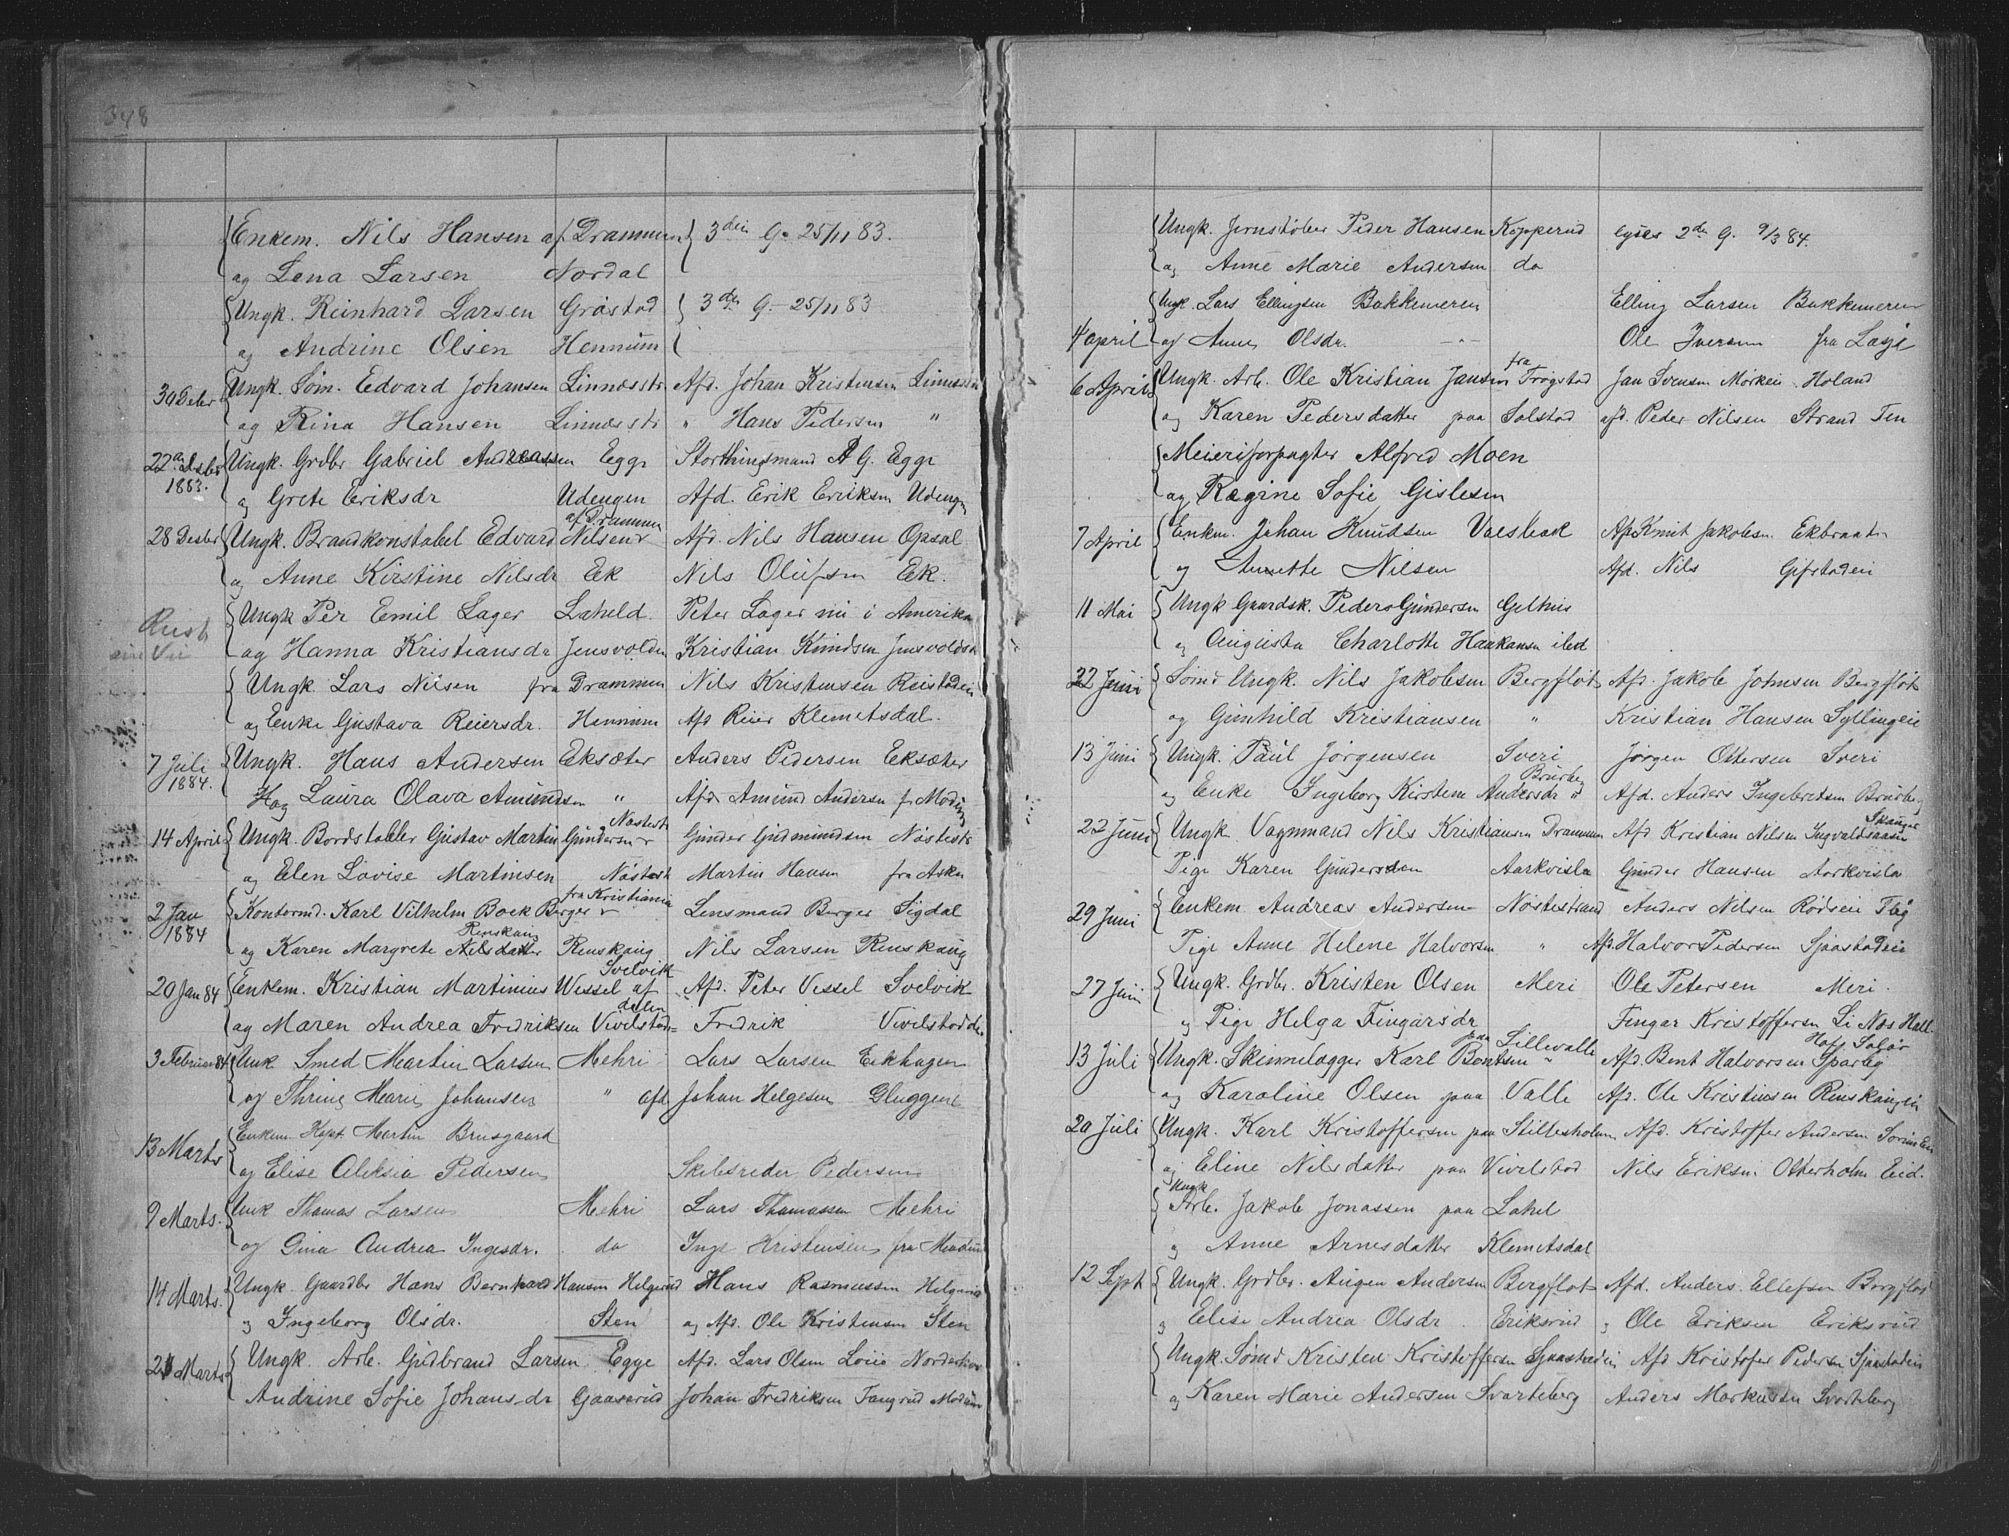 348
Enkem. Nils Hansen af Drammen 3die G. 25/11 83.
og Lena Larsen Nordal
Ungk. Reinhard Larsen Gröstad 3die G. 25/11 83
og Andrine Olsen Hennum
30 Debr Ungk. Söm. Edvard Johansen Linnæsstr. Afd. Johan Kristensen Linnæsstr
og Rina Hansen Linnæsstr " Hans Pedersen "
22de Desbr 1883. Ungk. Grdbr Gabriel Andreassen Egge Storthingsmand A G. Egge
og Grete Eriksdr Udengen Afd. Erik Eriksen Udengen
28 Desbr Ungk. Brandkonstabel Edvard Nilsen af Drammen Afd. Nils Hansen Opsal
og Anne Kirstine Nilsdr Ek Nils Olufsen Ek.
Ungk Per Emil Lager Laheld. Peter Lager nu i Amerika
og Hanna Kristiansdr Jensvolden Kristian Knudsen Jensvoldstr
Ungk. Lars Nilsen fra Drammen Nils Kristensen
og Enke Gustava Reiersdr. Hennum Afd Reier Klemetsdal.
7 Juli 1884. Ungk. Hans Andersen Eksæter Anders Pedersen Eksæter
og Laura Olava Amundsen " Afd. Amund Andersen fr Modum
14 April Ungk. Bordstabler Gustav Martin Gundersen Nöstestr Gunder Gudmundsen Nöstestr
og Elen Lovise Martinsen Nöstestr Martin Hansen fra Asker
2 Jan 1884 Kontormd. Karl Vilhelm Boek Berger fra Kristiania Lensmand Berger Sigdal
og Karen Margrete Nilsdatter Renskaug Renskaug Nils Larsen Renskaug
20 Jan 84 Enkem. Kristian Martinius Wessel af Svelvik Afd. Peter Vessel Svelvik
og Maren Andrea Fredriksen Vivelstaddalen Fredrik Vivelstaddalen
3 Februar 84 Unk Smed Martin Larsen Mehri Lars Larsen Eekhagen
og Thrine Marie Johansen " afd Johan Helgesen Gluggene
13 Marts Enkem. Kapt. Martin Brusgaard
og Elise Aleksia Pedersen Skibsreder Pedersen
9 Marts. Unk Thomas Larsen Mehri Lars Thomassen Mehri
og Gina Andrea Ingesdr. do Inge Kristensen fra Modum
14 Marts. Ungk Gaardbr Hans Bernhard Hansen Helgerud Hans Rasmussen Helgerud
og Ingeborg Olsdr. Sten og Afd. Ole Kristensen Sten
21 Marts Ungk. Arb. Gudbrand Larsen Egge Afd. Lars Olsen Norderhov
Andrine Sofie Johansdr Gaaserud Johan Fredriksen Modum
Ungk. Jernstöber Peder Hansen Kopperud lyses 2de G. 9/3 84.
og Anne Marie Andersen do
Ungk. Lars Ellingsen Bakkemeren Elling Larsen Bakkemeren
4 April og Anne Olsdr. — " — Ole Iversen fra Lesje
6 April Ungk. Arb. Ole Kristian Jansen fra Trögstad Jan Svensen Mörken Höland
og Karen Pedersdatter paa Solstad afd. Peder Nilsen Strand
Meieriforpagter Alfred Moen
og Regine Sofie Gislesen
7 April Enkem. Johan Knudsen Valsbak Afd Knut Jakobsen Ekbraaten
og Anette Nilsen Afd. Nils Gifstadeie
11 Mai Ungk Gaardsk. Peder Gundersen Gelhus
og Augusta Charlotte Haakansen ibid
22 Juni Sömd Ungk. Nils Jakobsen Bergfløt Afd. Jakob Johnsen Bergfløt
og Gunhild Kristiansen " Kristian Hansen Syllingeie
13 Juni Ungk. Paul Jörgensen Sveri Jörgen Ottersen Sveri
og Enke Ingeborg Kirstine Andersdr Brurberg Afd. Anders Ingebretsen Brurberg
22 Juni Ungk. Vognmand Nils Kristiansen Drammen Afd Kristian Nilsen Ingvaldsaasen
Pige Karen Gundersen Aarkvisla Gunder Hansen Aarkvisla
29 Juni Enkem Andreas Andersen Nöstestrand Anders Nilsen Rödseie
Pige Anne Helene Halvorsen " Afd. Halvor Pedersen Sjaastadeie
27 Juni Ungk. Grdbr. Kristen Olsen Meri Ole Petersen Meri.
og Pige Helga Fingarsdr Fingar Kristoffersen Li Næs Hall.
13 Juli Ungk. Skinnelægger Karl Bentsen paa Lillevalle Afd. Bent Halvorsen Sparby Hof Solör
og Karoline Olsen paa Valle Afd. Ole Kristensen Renskaugeie
20 Juli Ungk. Karl Kristoffersen paa Stillesholmen Afd. Kristoffer Andersen
og Eline Nilsdatter paa Vivelstad Nils Eriksen Otterholm Eid.
Ungk Arb. Jakob Jonassen paa Lahel
og Anne Arnesdatter Klemetsdal
12 Sept Ungk. Grdbr. Augen Andersen Bergflot Afd. Anders Ellefsen Bergflot
og Elise Andrea Olsdr. Eriksrud og Ole Eriksen Eriksrud
Ungk. Sömd Kristen Kristoffersen Sjaastadeie Afd Kristofer Pedersen Sjaastadeie
og Karen Marie Andersen Svarteberg Anders Markusen Svarteberg